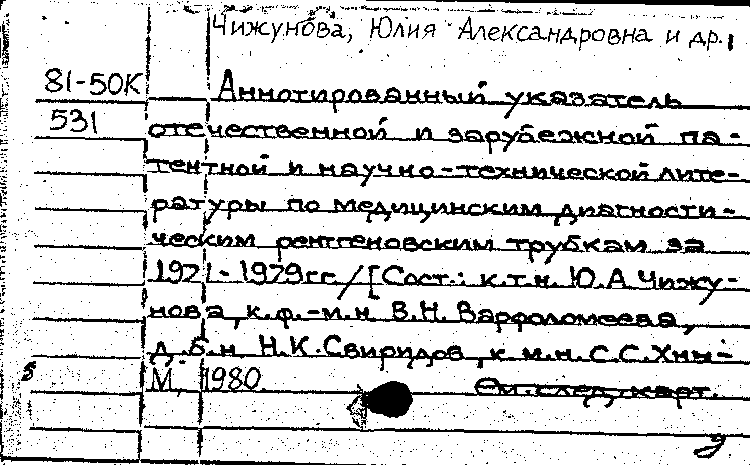 Чижунова, Юлия Александровна и др.
81-50К Аннотированный указатель
531 отечественной и зарубежной па-
тентной и научно-технической лите-
ратуры по медицинским диагности-
ческим рентгеновским трубкам за
1971-1979гг. / [Сост.: к.т.н. Ю.А Чижу-
нова, к.ф.-м.н В.Н. Варфоломеева,
д.б.н Н.К.Свиридов, к м.н. С.С.
М., 1980. См. след. карт.